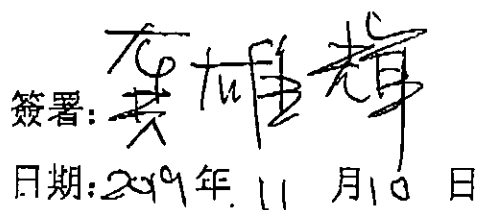 簽署：黄雄輝
日期：2019年11月10日